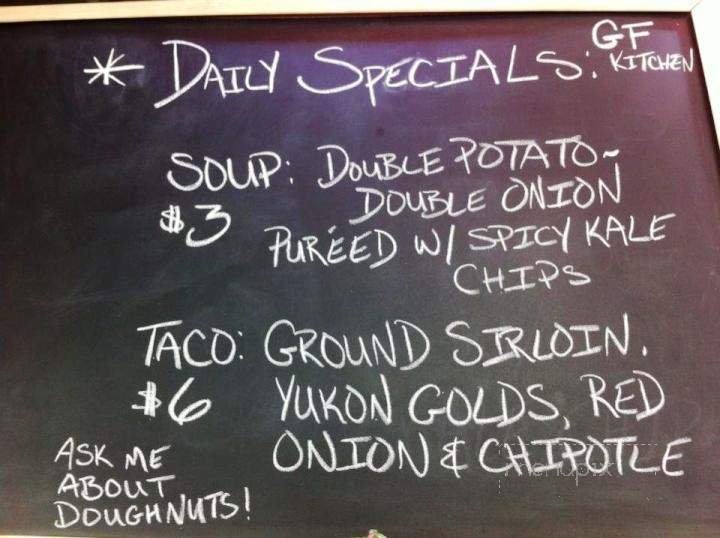 * DAILY SPECIALS: GF KITCHEN
SOUP: DOUBLE POTATO~
$3 DOUBLE ONION
PURÉED W/ SPICY KALE
CHIPS
TACO: GROUND SIRLOIN.
$6 YUKON GOLDS, RED
ONION & CHIPOTLE
ASK ME
ABOUT
DOUGHNUTS!
menupix